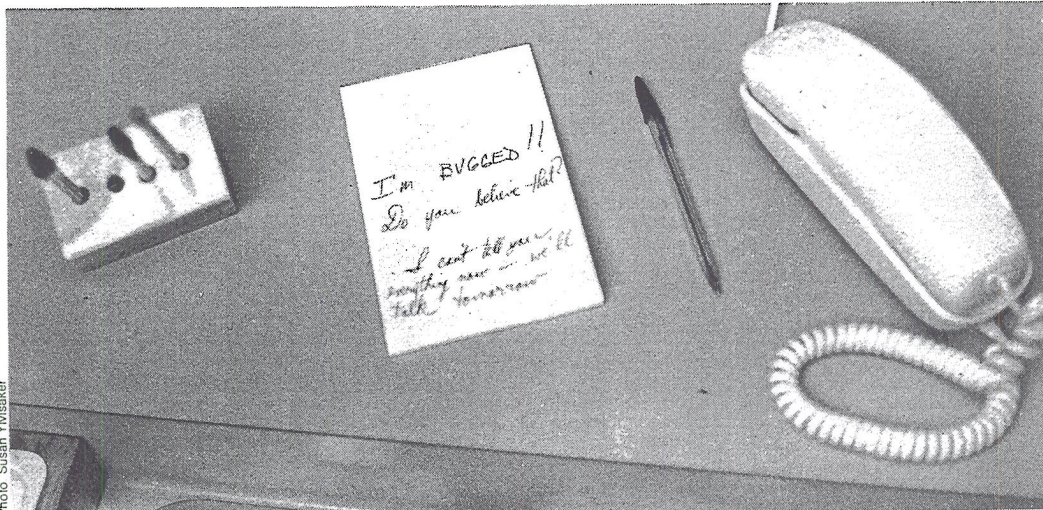 I'm BUGGED!!
Do you believe that?
I can't tell you
everything now — we'll
talk tomorrow
Photo Susan Ylvisaker